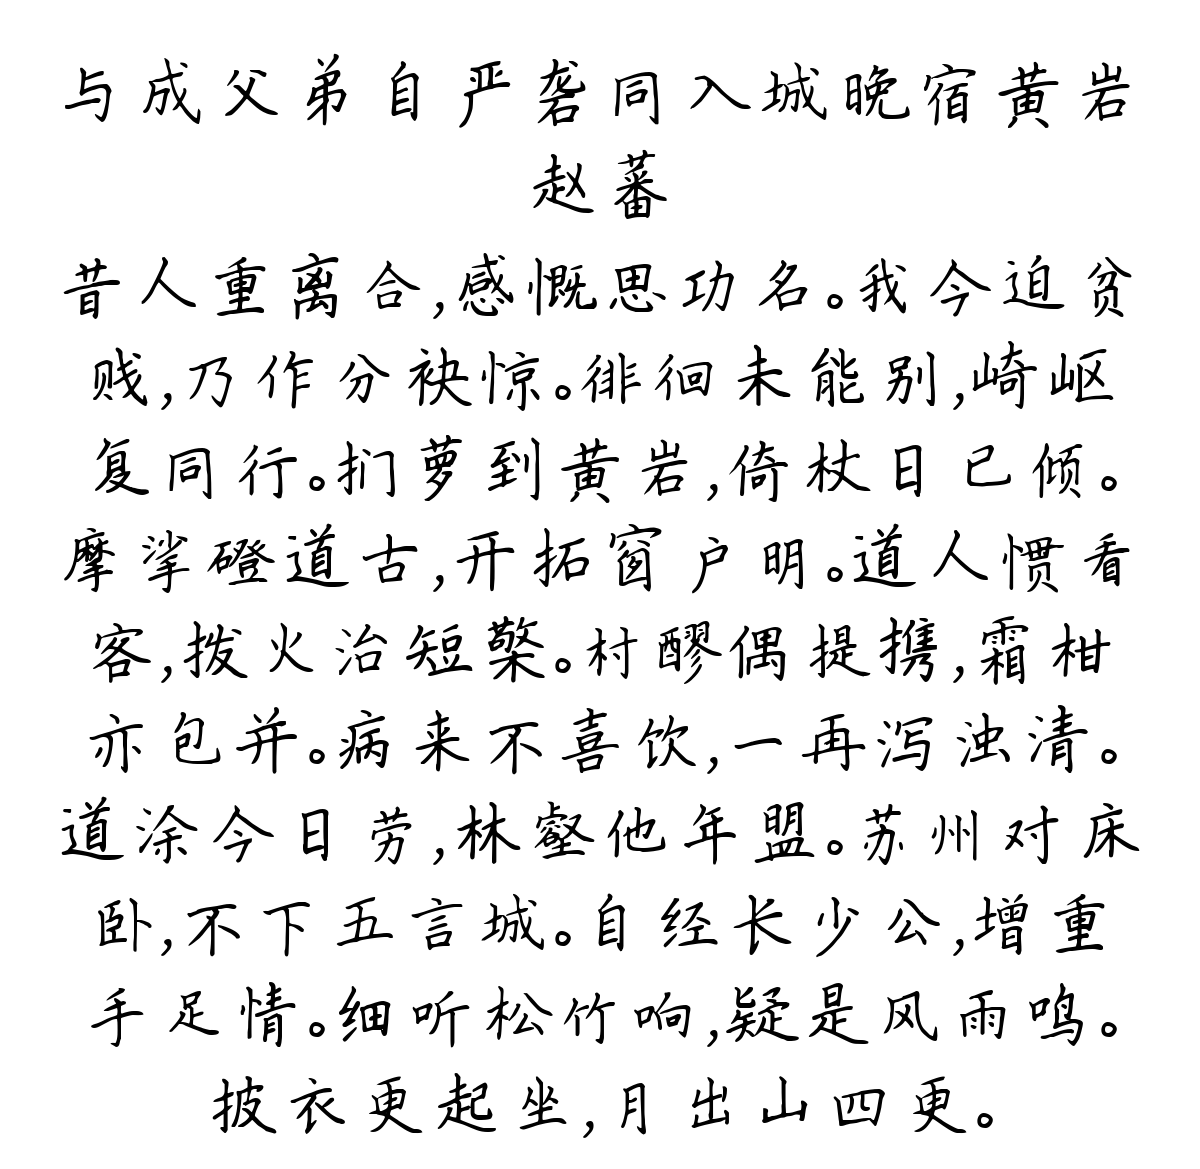 与成父弟自严砻同入城晚宿黄岩
赵蕃
昔人重离合,感慨思功名。我今迫贫
贱,乃作分袂惊。徘徊未能别,崎岖
复同行。扪萝到黄岩,倚杖日已倾。
摩挲磴道古,开拓窗户明。道人惯看
客,拨火治短檠。村醪偶提携,霜柑
亦包并。病来不喜饮,一再泻浊清。
道涂今日劳,林壑他年盟。苏州对床
卧,不下五言城。自经长少公,增重
手足情。细听松竹响,疑是风雨鸣。
披衣更起坐,月出山四更。